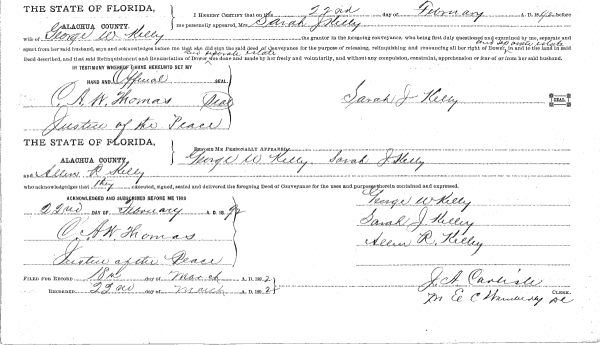 THE STATE OF FLORIDA,
ALACHUA COUNTY.
I HEREBY CERTIFY that on the 22nd day of February A. D. 18 before
me personally appeared, Mrs. Sarah J Kelly
wife of George W. Kelly the grantor in the foregoing conveyance, who being first duly questioned and examined by me, separate and
apart from her said husband, says and acknowledges before me that she did sign the said deed of Conveyance for the purpose of releasing, relinquishing and renouncing all her right of Dower, and separate estate in and to the land in said
Deed described, and that said Relinquishment and Renunciation of Dower and separate estate was done and made by her freely and voluntarily, and without any compulsion, constraint, apprehension or fear of or from her said husband.
IN TESTIMONY WHEREOF I HAVE HEREUNTO SET MY
HAND AND Official SEAL.
C. A. W. Thomas Seal
Sarah J Kelly SEAL
Justice of the Peace
THE STATE OF FLORIDA,
ALACHUA COUNTY.
BEFORE ME PERSONALLY APPEARED
George W Kelly. Sarah J Kelly
and Allen R. Kelly
who acknowledges that they executed, signed, sealed and delivered the foregoing Deed of Conveyance for the uses and purposes therein contained and expressed.
ACKNOWLEDGED AND SUBSCRIBED BEFORE ME THIS
22nd DAY OF February A. D. 1892
George W Kelly
Sarah J. Kelley
C. A. W Thomas
Allen R. Kelley
Justice of the Peace
FILED FOR RECORD 18th day of March A. D. 189
J. A. Carlisle
CLERK.
RECORDED 22nd day of March A. D. 189